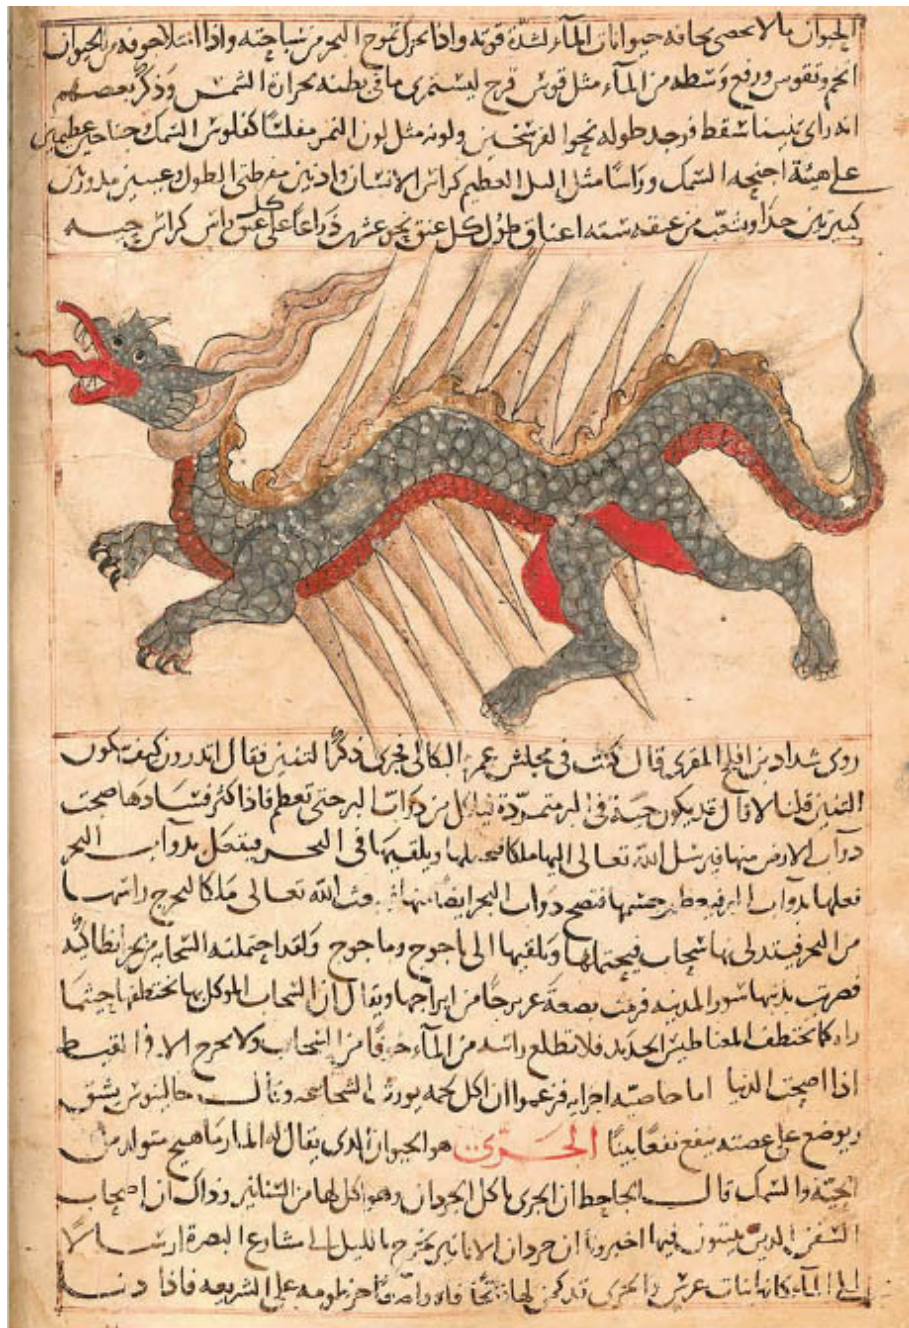 الحيوان ما لا يحصى يخافه حيوانات الماء لشدة قوته واذا تحرك تموج البحر من سباحته واذا امتلا جوفه من الحيوان
انحم وتقوس ورفع وسطه من الماء مثل قوس قزح ليستمرى ما فى بطنه بحرارة الشمس وذكر بعضهم
انه راى تنينا سقط فوجد طوله نحوا لفرسخين ولونه مثل لون النمر مفلسا كفلوس السمك وجناحين عظيمين
على هيئة اجنحة السمك وراسا مثل التل العظيم كراس الانسان واذنين مفرطتى الطول وعينين مدورتين
كبيرتين جدا وتشعب من عنقه ستة اعناق طول كل عنق نحو عشرين ذراعا على كل عنق راس كراس حية
روى شداد بن افلح المقرى قال كنت فى مجلس عمر البكالى فجرى ذكر التنين فقال اتدرون كيف يكون
التنين قلنا لا قال قد يكون حية فى البر متمردة فياكل من دواب البر حتى تعظم فاذا كثر فسادها ضجت
دواب الارض منها فيرسل الله تعالى اليها ملكا فيحملها ويلقيها فى البحر فيفعل بدواب البحر
فعلها بدواب البر فتضج دواب البحر ايضا منها فيبعث الله تعالى ملكا ليخرج راسها
من البحر فيتدلى بها سحاب فيحتملها ويلقيها الى ياجوج وماجوج ولقد احتملته السحاب من بحر انطاكية
فضربت بذنبها سور المدينة فرمت بضعة عشر برجا من ابراجها ويقال ان السحاب الموكل بها يختطفها حيثما
راه كما يختطف المغناطيس الحديد فلا تطلع راسه من الماء خوفا من السحاب ولا يخرج الا فى القيظ
اذا اصحت الدنيا اما خاصية اجزائه فزعموا ان اكل لحمه يورث الشجاعة وقال جالينوس يشق
ويوضع على عضته ينفع نفعا بينا الجرى هو الحيوان الذى يقال له المارماهيج متولد من
الحية والسمك قال الجاحظ ان الجرى ياكل الجرذان وهو اكل لها من السنانير وذاك ان اصحاب
السفن الذين يبيتون فيها اخبروا ان جرذان الانابير تخرج بالليل الى مشارع البصرة ارسالا
الى الماء كانها بنات عرس والجرى قد كمن لها فاتحا فاه واضعا خرطومه على الشريعة فاذا دنت